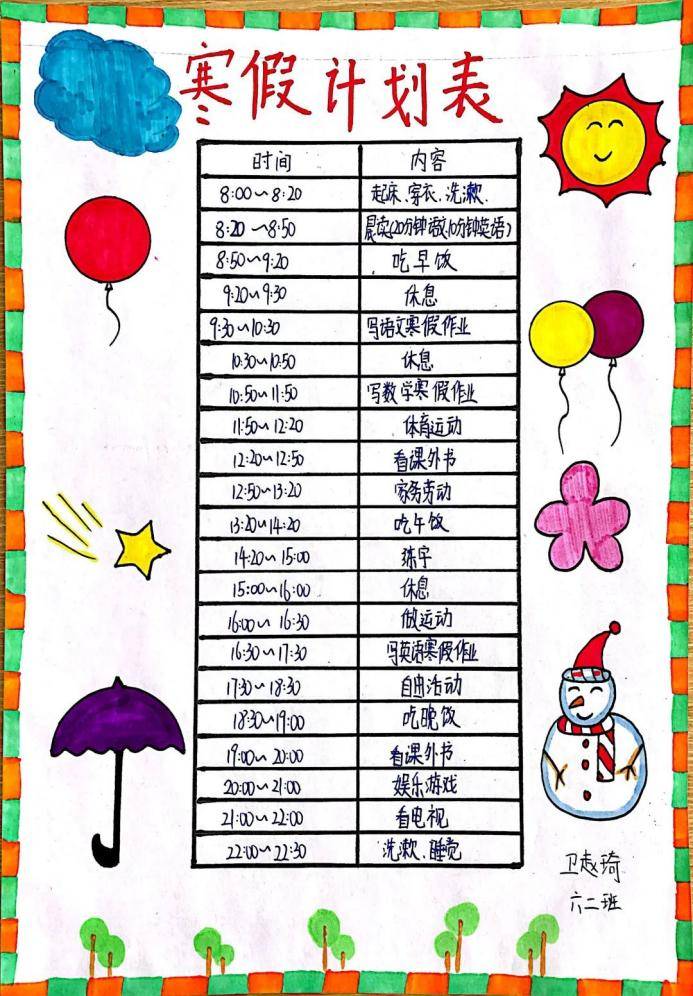 寒假计划表
时间 内容
8:00~8:20 起床、穿衣、洗漱.
8:20~8:50 晨读(20分钟语文,10分钟英语)
8:50~9:20 吃早饭
9:20~9:30 休息
9:30~10:30 写语文寒假作业
10:30~10:50 休息
10:50~11:50 写数学寒假作业
11:50~12:20 体育运动
12:20~12:50 看课外书
12:50~13:20 家务劳动
13:20~14:20 吃午饭
14:20~15:00 练字
15:00~16:00 休息
16:00~16:30 做运动
16:30~17:30 写英语寒假作业
17:30~18:30 自由活动
18:30~19:00 吃晚饭
19:00~20:00 看课外书
20:00~21:00 娱乐游戏
21:00~22:00 看电视
22:00~22:30 洗漱、睡觉
卫赵琦
六二班